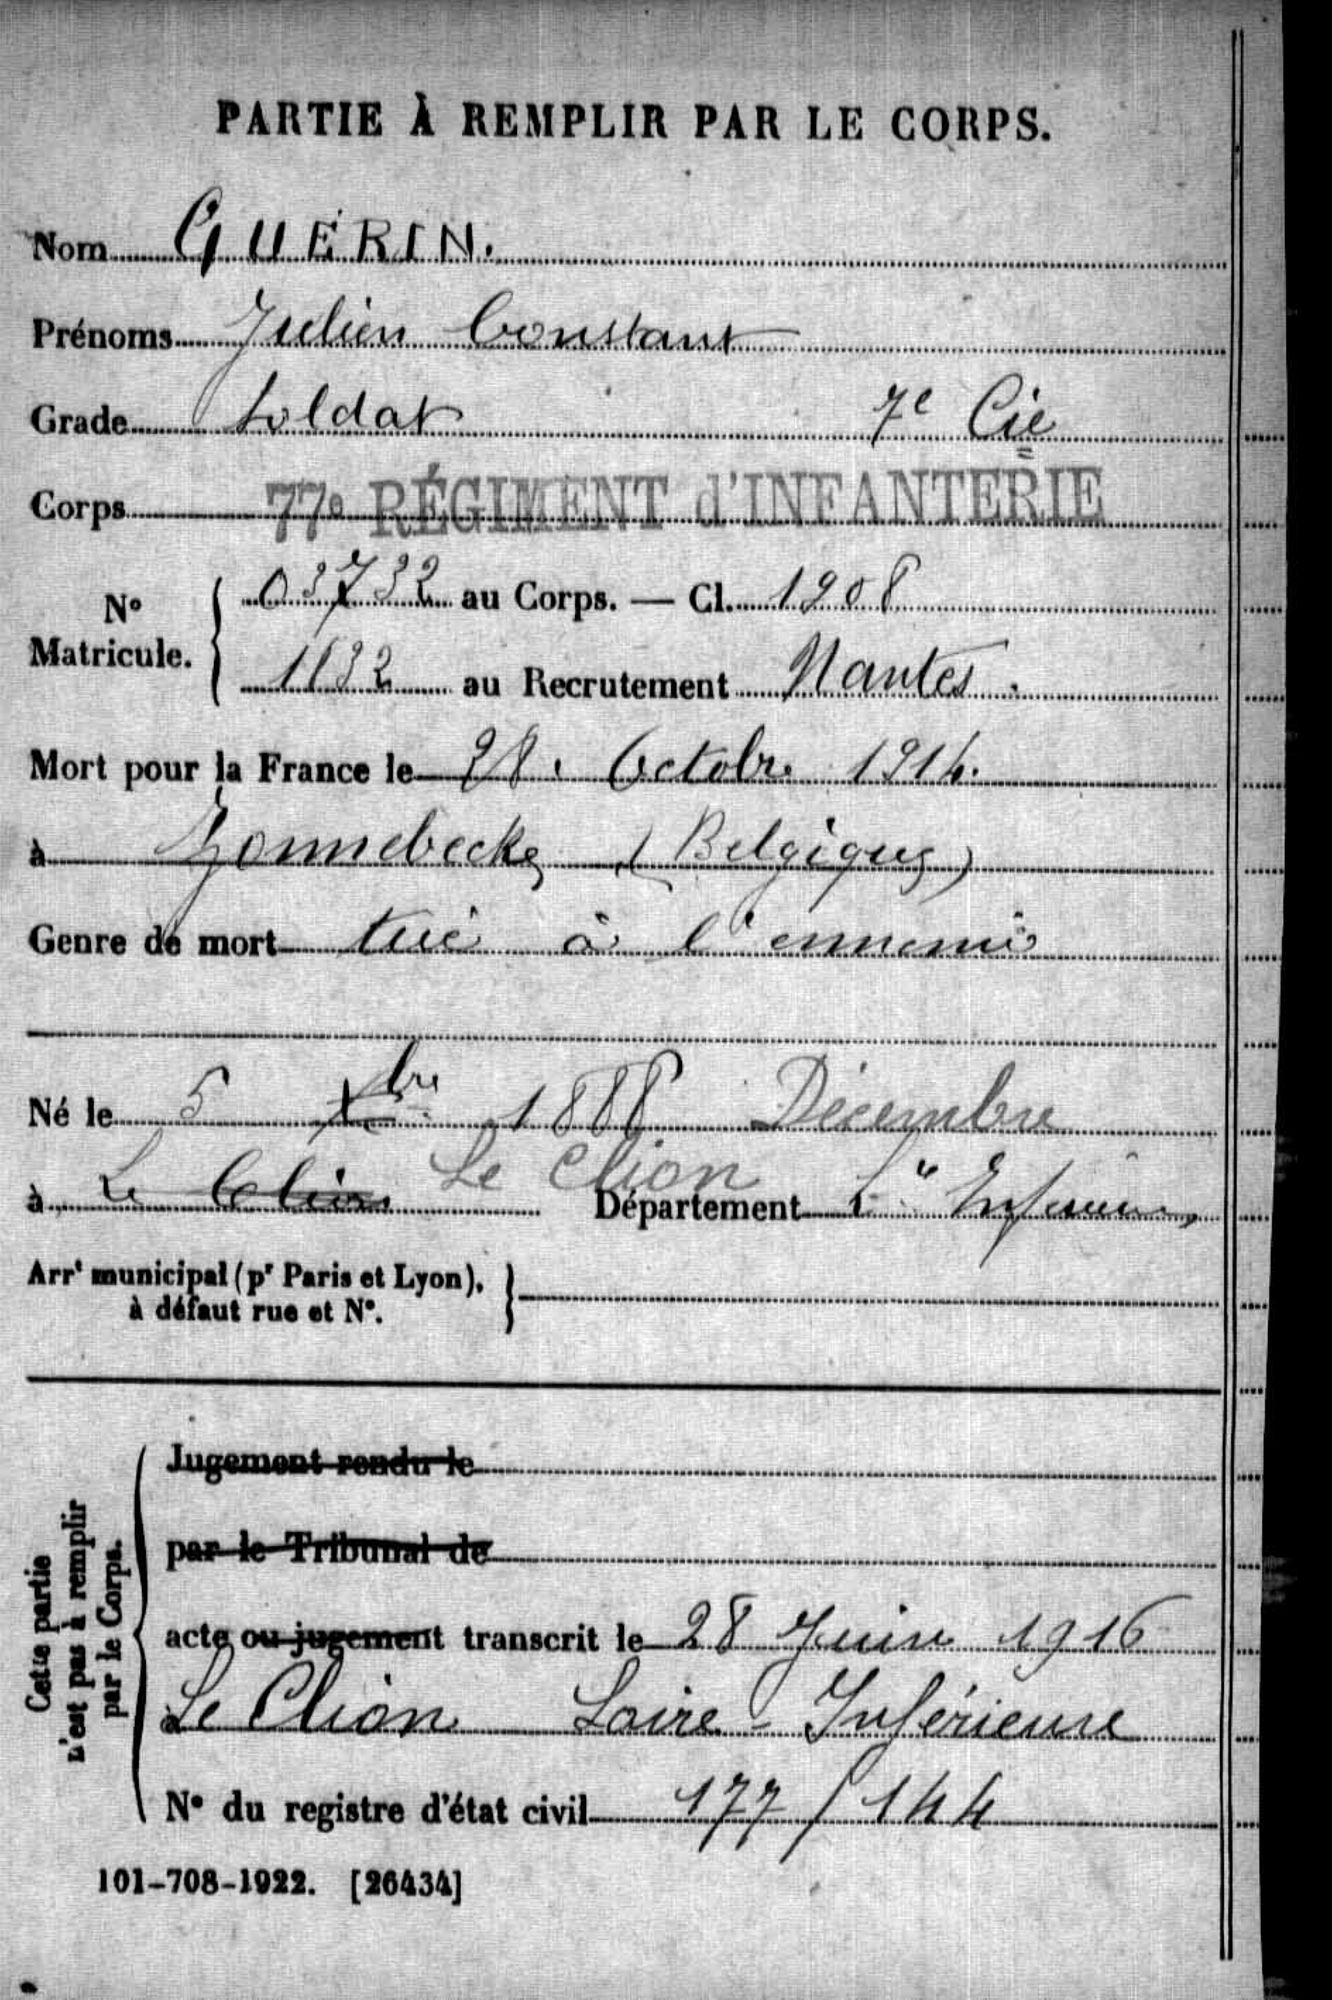 PARTIE À REMPLIR PAR LE CORPS.
Nom GUÉRIN.
Prénoms Julien Constant
Grade Soldat 7e Cie
Corps 77e RÉGIMENT d'INFANTERIE
No Matricule. 03732 au Corps. — Cl. 1908
1132 au Recrutement Nantes.
Mort pour la France le 28. Octobre 1914.
à Zonnebecke (Belgique)
Genre de mort tué à l'ennemi
Né le 5 Xbre 1888 Décembre
à Le Clion Le Clion Département Lre Inférieure
Arrt municipal (pr Paris et Lyon),
à défaut rue et No.
Cette partie n'est pas à remplir par le Corps.
Jugement rendu le
par le Tribunal de
acte ou jugement transcrit le 28 Juin 1916
à Le Clion Loire-Inférieure
No du registre d'état civil 177/144
101-708-1922. [26434]